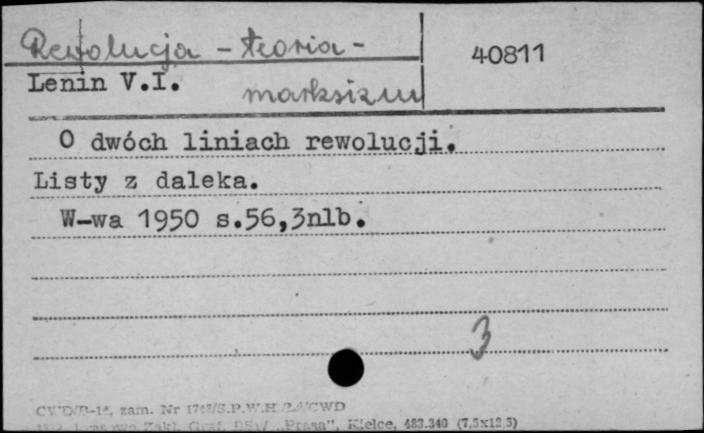 Rewolucja - teoria -
40811
Lenin V.I.
marksizm
O dwóch liniach rewolucji.
Listy z daleka.
W-wa 1950 s.56,3nlb.
3
zam. Nr
Zakł. Graf. RSW „Prasa", Kielce, 483.340 (7,5x12,5)